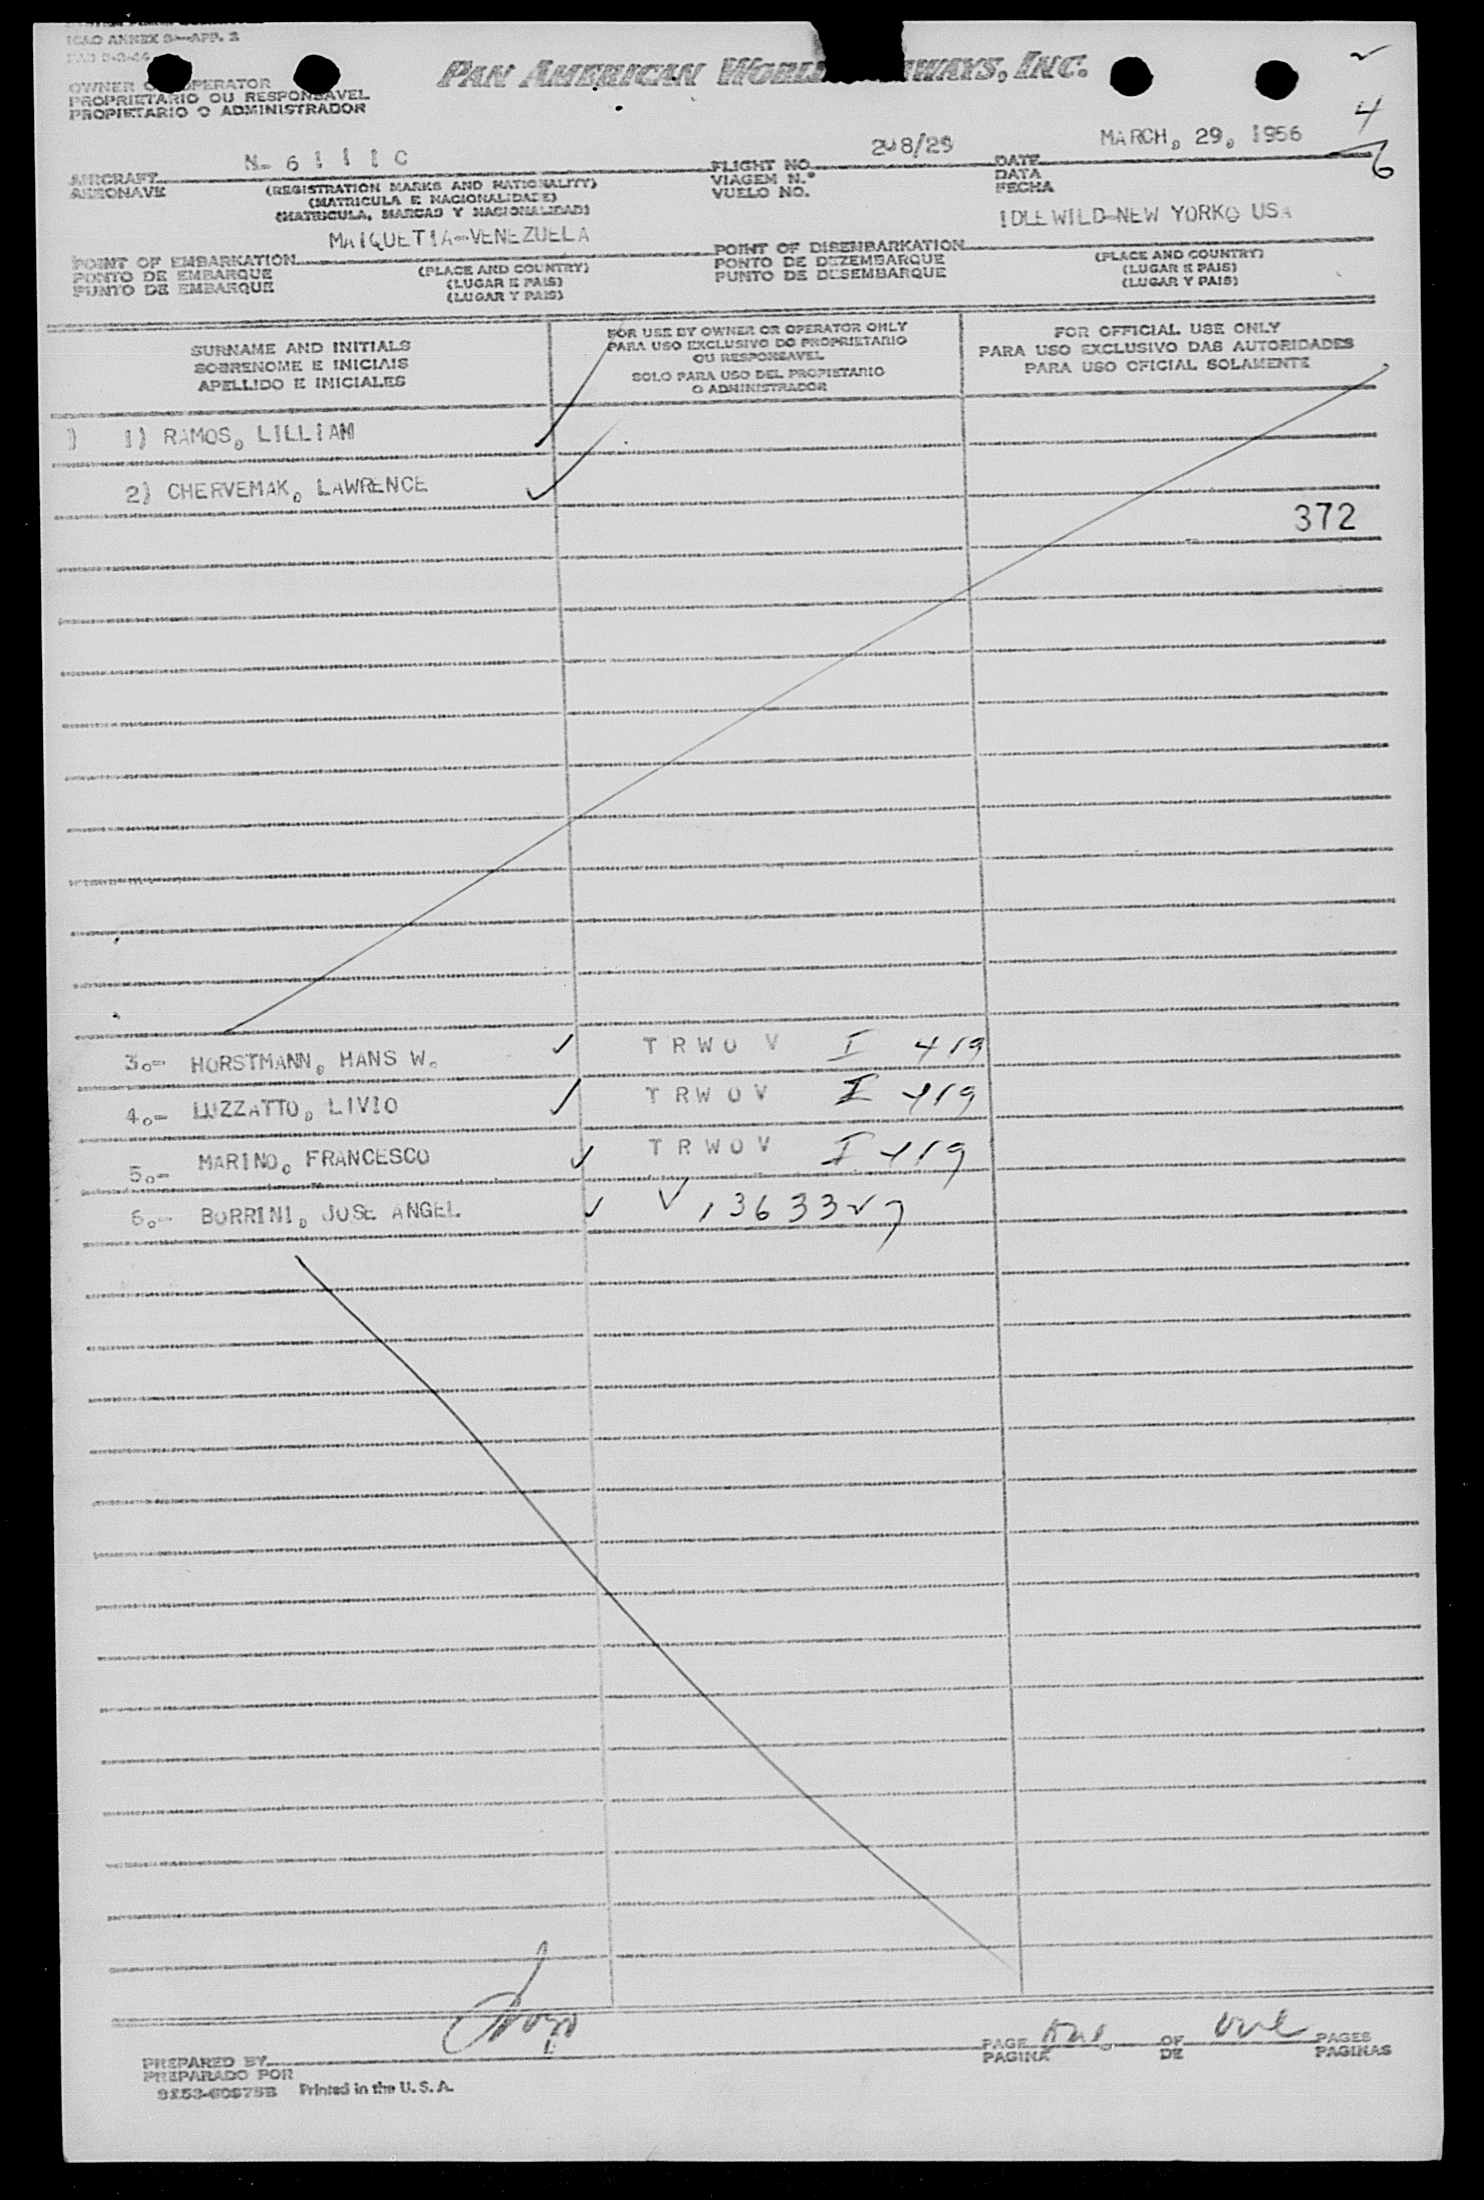 ICAO ANNEX 9—APP. 2
OWNER OR OPERATOR
PROPRIETARIO OU RESPONSAVEL
PROPIETARIO O ADMINISTRADOR
PAN AMERICAN WORLD AIRWAYS, INC.
4
6
AIRCRAFT N- 6 1 1 1 C FLIGHT NO. 208/29 DATE MARCH, 29, 1956
AERONAVE (REGISTRATION MARKS AND NATIONALITY) VIAGEM N.º DATA
(MATRICULA E NACIONALIDADE) VUELO NO. FECHA
(MATRICULA, MARCAS Y NACIONALIDAD)
POINT OF EMBARKATION MAIQUETIA-VENEZUELA POINT OF DISEMBARKATION IDLEWILD-NEW YORK, USA
PONTO DE EMBARQUE (PLACE AND COUNTRY) PONTO DE DEZEMBARQUE (PLACE AND COUNTRY)
PUNTO DE EMBARQUE (LUGAR E PAIS) PUNTO DE DESEMBARQUE (LUGAR E PAIS)
(LUGAR Y PAIS) (LUGAR Y PAIS)
SURNAME AND INITIALS
SOBRENOME E INICIAIS
APELLIDO E INICIALES
FOR USE BY OWNER OR OPERATOR ONLY
PARA USO EXCLUSIVO DO PROPRIETARIO
OU RESPONSAVEL
SOLO PARA USO DEL PROPIETARIO
O ADMINISTRADOR
FOR OFFICIAL USE ONLY
PARA USO EXCLUSIVO DAS AUTORIDADES
PARA USO OFICIAL SOLAMENTE
) 1) RAMOS, LILLIAM
2) CHERVEMAK, LAWRENCE
372
3.- HORSTMANN, HANS W. TRWOV I 419
4.- LUZZATTO, LIVIO TRWOV I 419
5.- MARINO, FRANCESCO TRWOV I 419
6.- BORRINI, JOSE ANGEL V 1363327
PREPARED BY PAGE one OF one PAGES
PREPARADO POR PAGINA DE PAGINAS
Printed in the U. S. A.